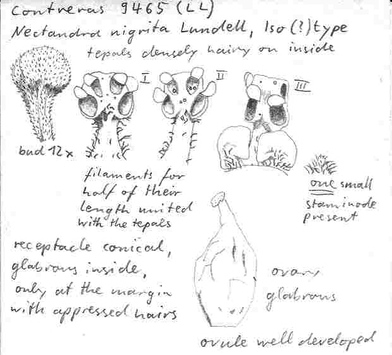 Contreras 9465 (LL)
Nectandra nigrita Lundell, Iso(?)type
tepals densely hairy on inside
I
II
III
bud 12x
filaments for
half of their
length united
with the tepals
one small
staminode
present
receptacle conical,
glabrous inside,
only at the margin
with appressed hairs
ovary
glabrous
ovule well developed